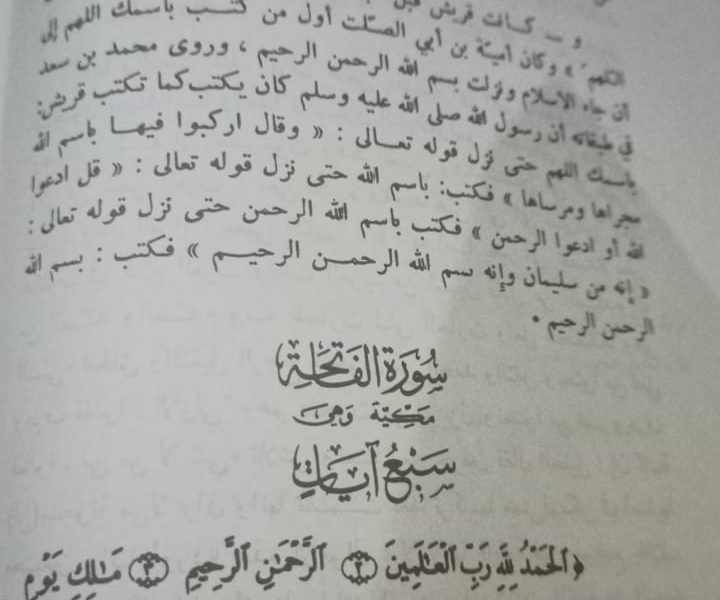 و — كانت قريش قبل
اللهم » وكان أمية بن أبي الصلت أول من كتب باسمك اللهم إلى
أن جاء الاسلام ونزلت بسم الله الرحمن الرحيم ، وروى محمد بن سعد
في طبقاته أن رسول الله صلى الله عليه وسلم كان يكتب كما تكتب قريش:
باسمك اللهم حتى نزل قوله تعالى : « وقال اركبوا فيها باسم الله
مجراها ومرساها » فكتب: باسم الله حتى نزل قوله تعالى : « قل ادعوا
الله أو ادعوا الرحمن » فكتب باسم الله الرحمن حتى نزل قوله تعالى :
« إنه من سليمان وإنه بسم الله الرحمن الرحيم » فكتب : بسم الله
الرحمن الرحيم .
سُورَةُ الْفَاتِحَةِ
مَكِيَّة وَهِيَ
سَبْعُ آيَاتٍ
﴿ الْحَمْدُ لِلَّهِ رَبِّ الْعَالَمِينَ ﴿٢﴾ الرَّحْمَٰنِ الرَّحِيمِ ﴿٣﴾ مَالِكِ يَوْمِ